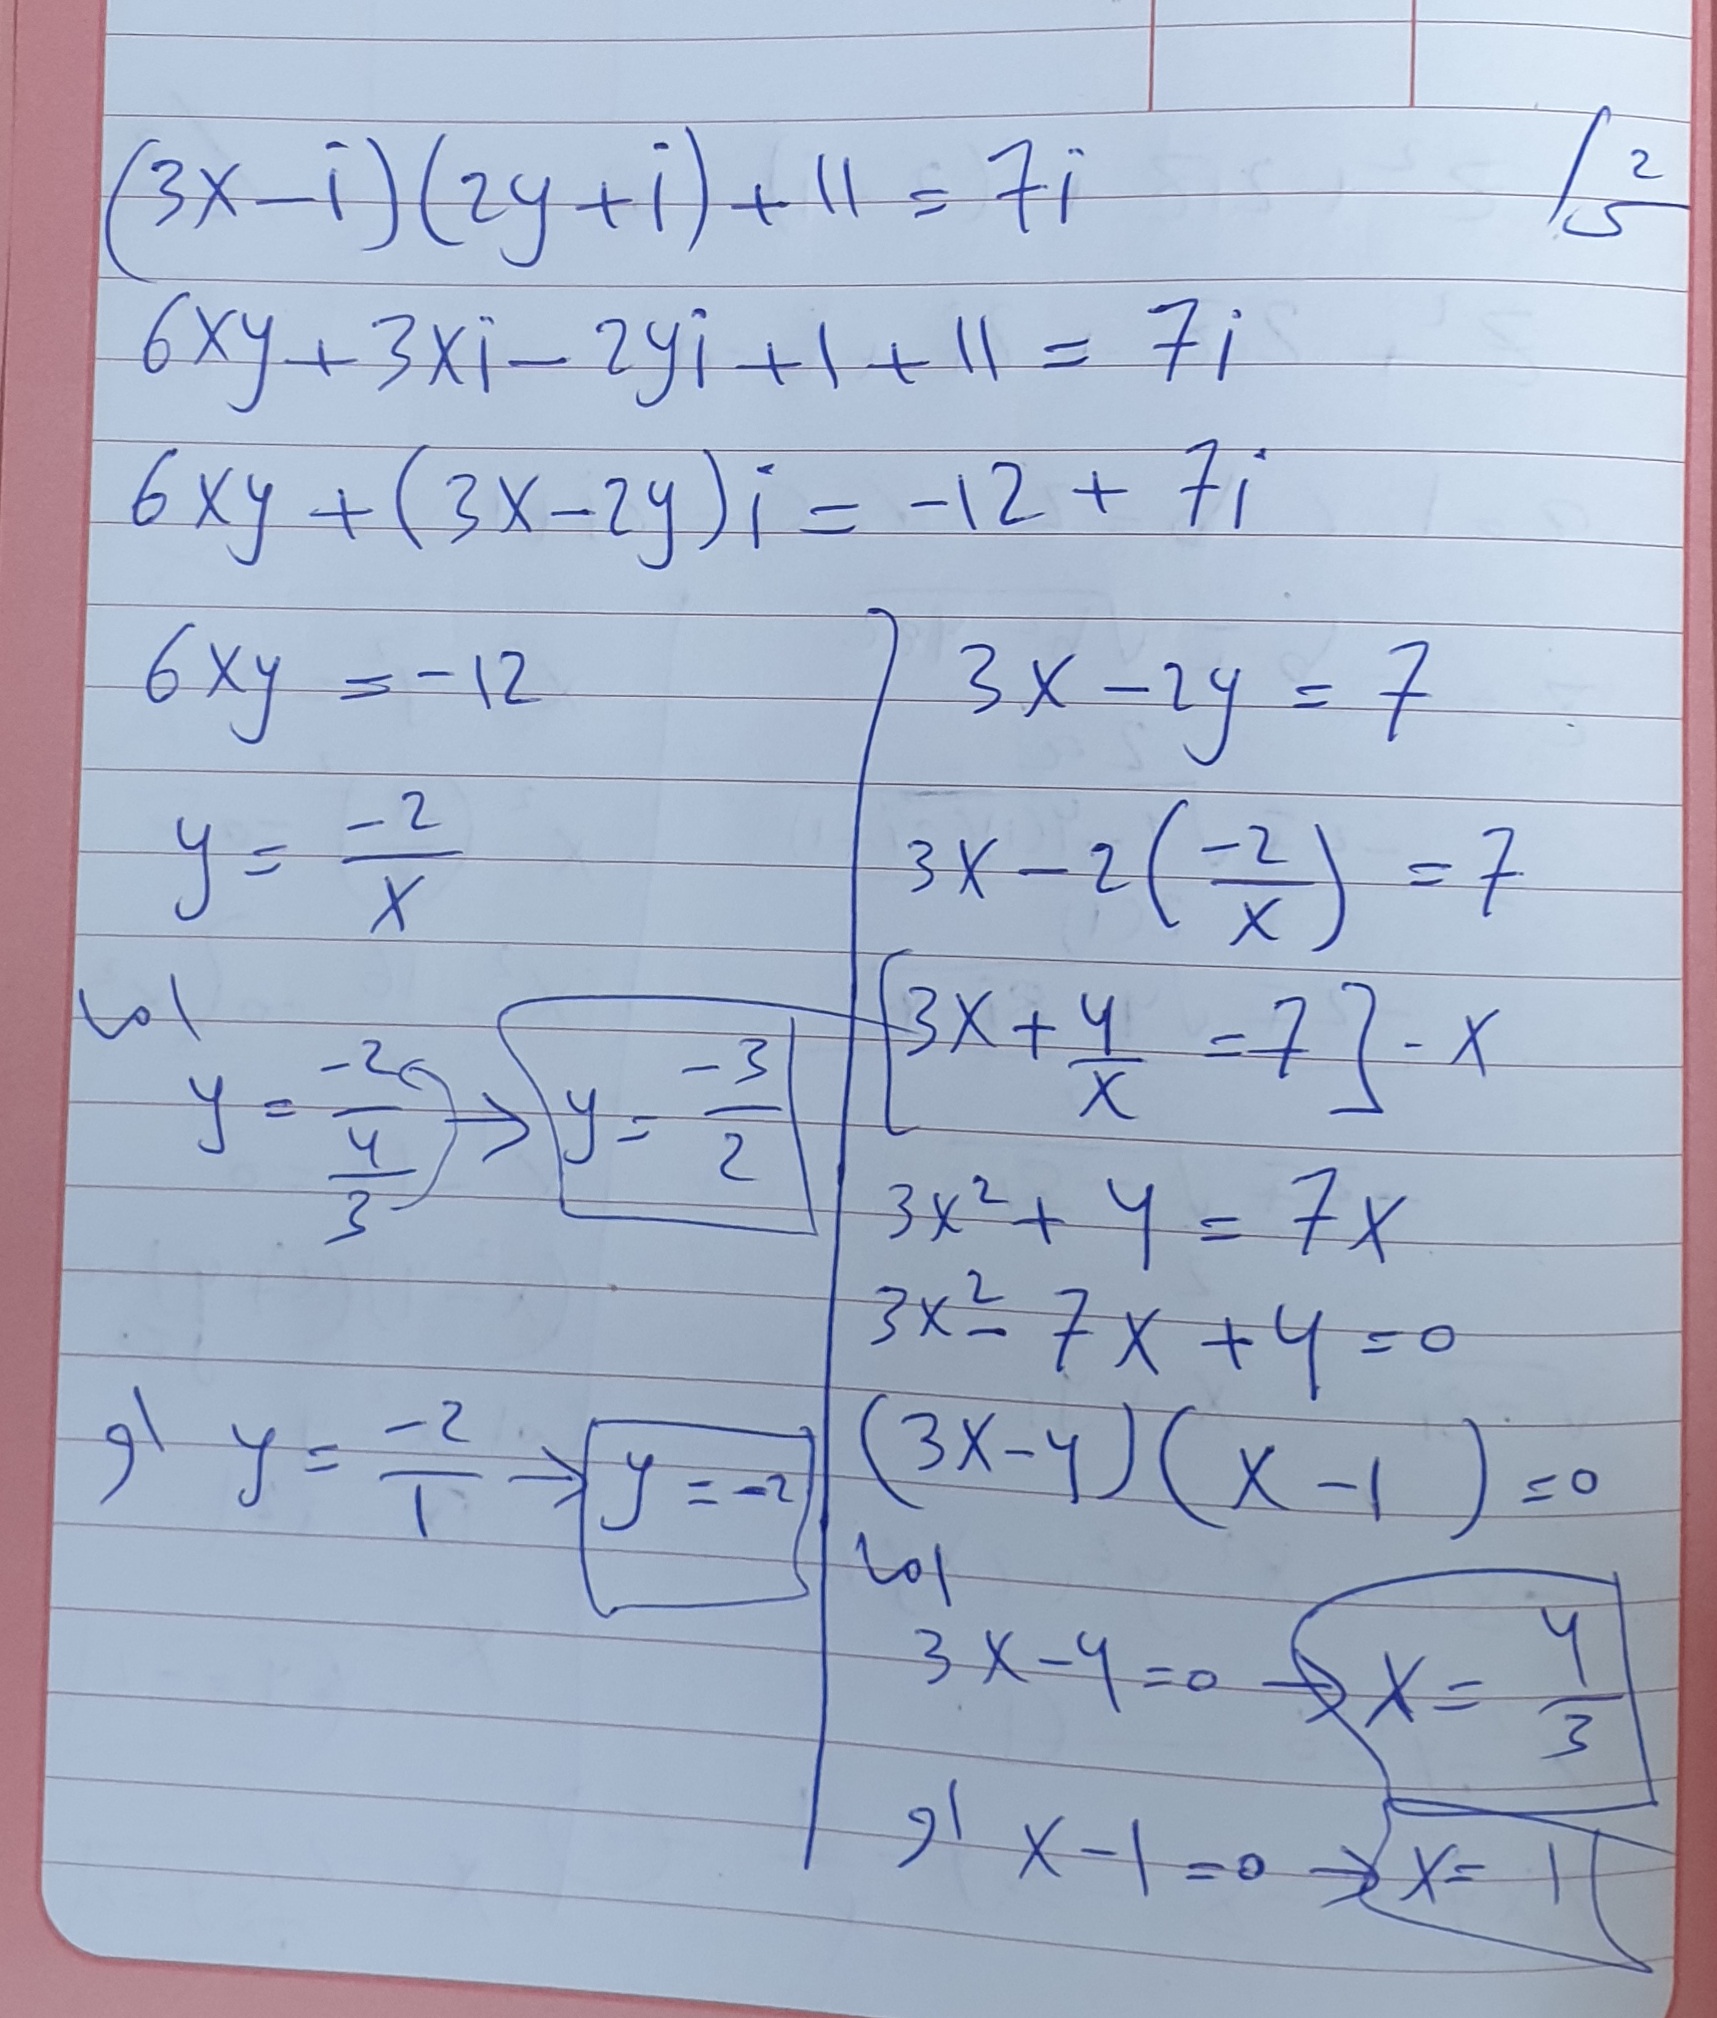 (3x-i)(2y+i)+11=7i
6xy+3xi-2yi+1+11=7i
6xy+(3x-2y)i=-12+7i
6xy=-12
y=-2/x
اما
y=-2/(4/3) → y=-3/2
او y=-2/1 → y=-2
3x-2y=7
3x-2(-2/x)=7
[3x+4/x=7]·x
3x²+4=7x
3x²-7x+4=0
(3x-4)(x-1)=0
اما
3x-4=0 → x=4/3
او x-1=0 → x=1